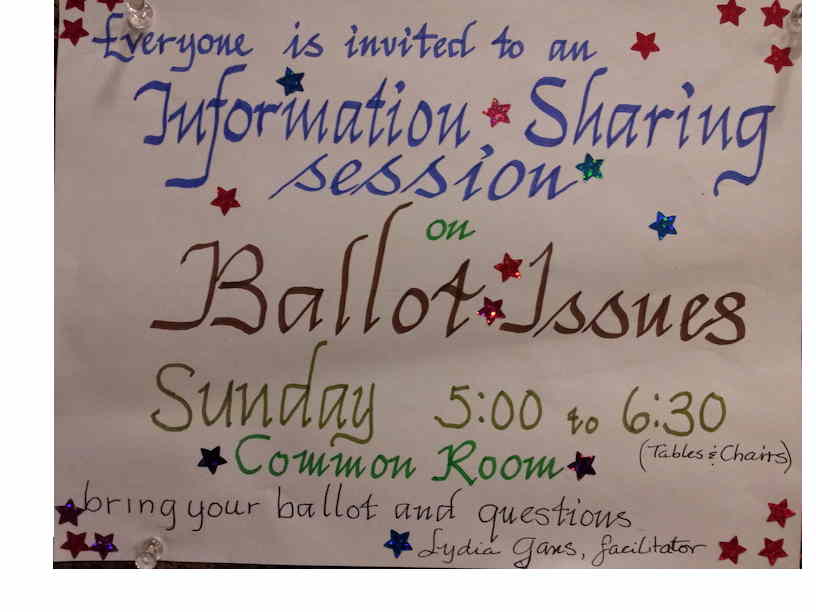 Everyone is invited to an
Information Sharing
session
on
Ballot Issues
Sunday 5:00 to 6:30
Common Room (Tables & Chairs)
bring your ballot and questions
Lydia Gans, facilitator